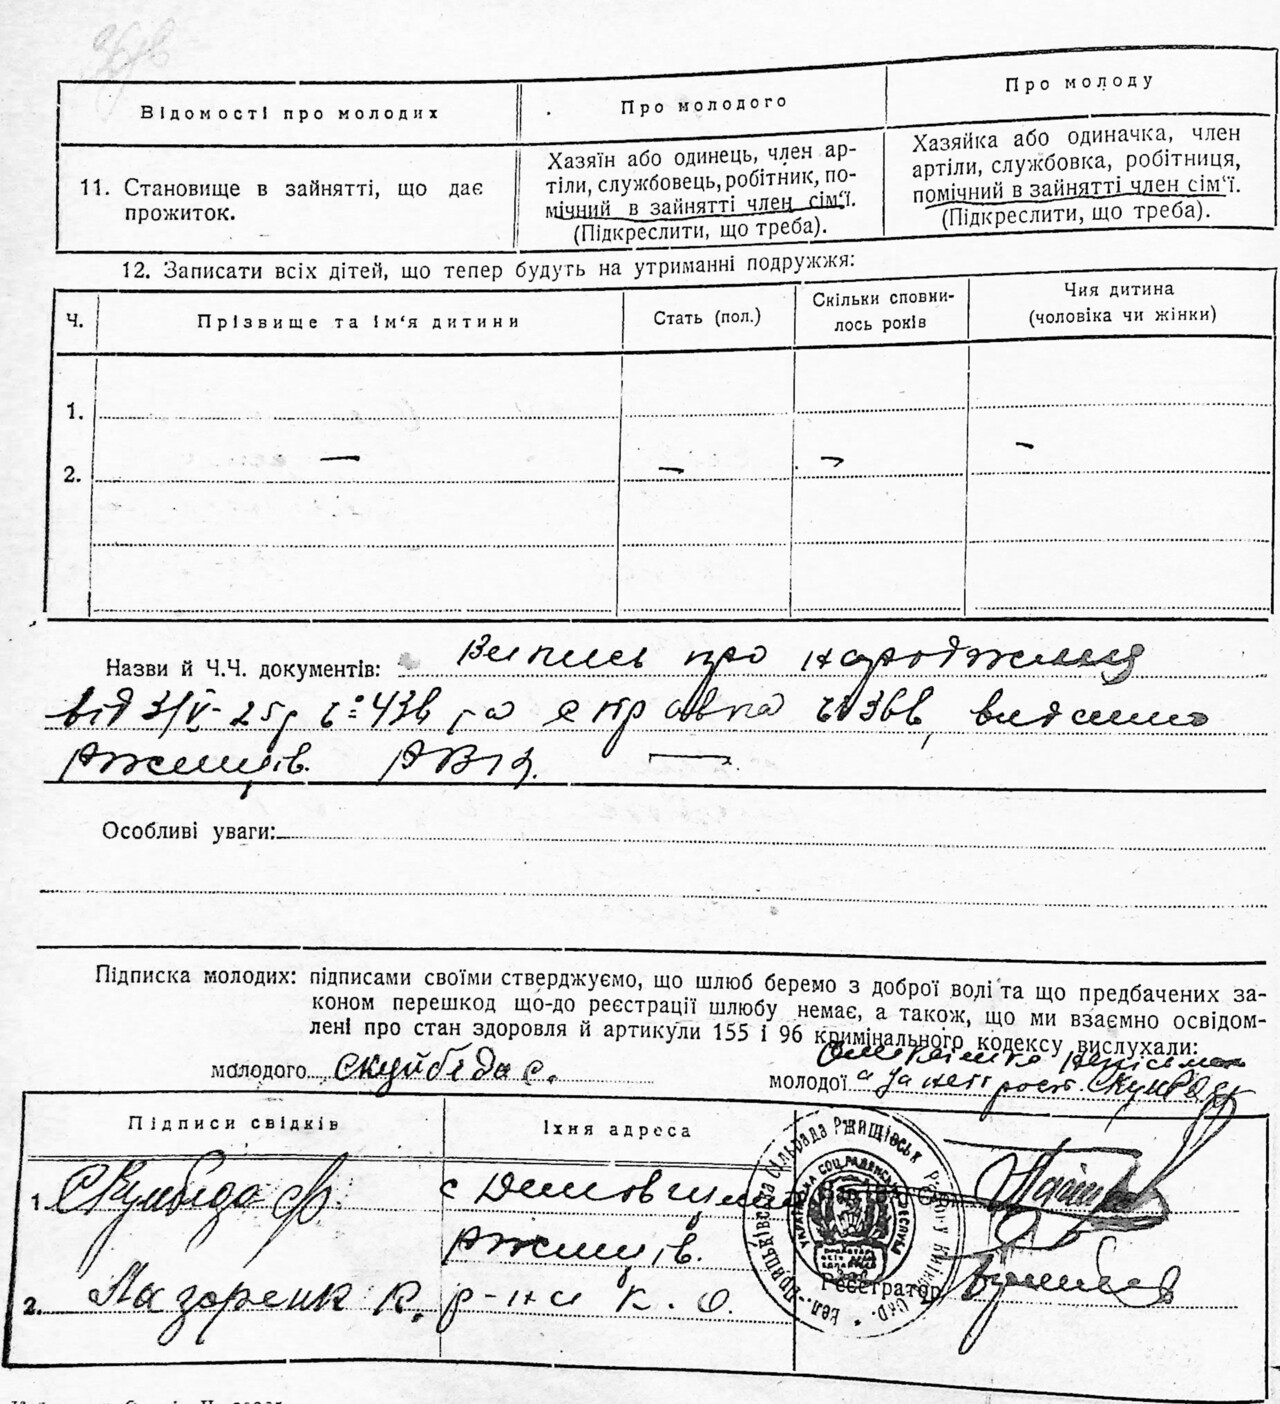 Відомості про молодих
Про молодого
Про молоду
11. Становище в зайнятті, що дає
прожиток.
Хазяїн або одинець, член ар-
тіли, службовець, робітник, по-
мічний в зайнятті член сім'ї.
(Підкреслити, що треба).
Хазяйка або одиначка, член
артіли, службовка, робітниця,
помічний в зайнятті член сім'ї.
(Підкреслити, що треба).
12. Записати всіх дітей, що тепер будуть на утриманні подружжя:
Ч.
Прізвище та ім'я дитини
Стать (пол.)
Скільки сповни-
лось років
Чия дитина
(чоловіка чи жінки)
1.
— — — —
2.
Назви й Ч.Ч. документів: Випись про народження
від 3/V-25р ч. 436 та справка ч 366, видана
Ржищів. РВІК. —
Особливі уваги:
Підписка молодих: підписами своїми стверджуємо, що шлюб беремо з доброї волі та що предбачених за-
коном перешкод що-до реєстрації шлюбу немає, а також, що ми взаємно освідом-
лені про стан здоровля й артикули 155 і 96 кримінального кодексу вислухали:
молодого Скуйбіда С.
молодої а за неї розп. Скуйбіда
Підписи свідків
Їхня адреса
1. Скуйбіда Ф.
с
Ржищів.
2. Назаренк К.
р-на К. О.
Реєстратор